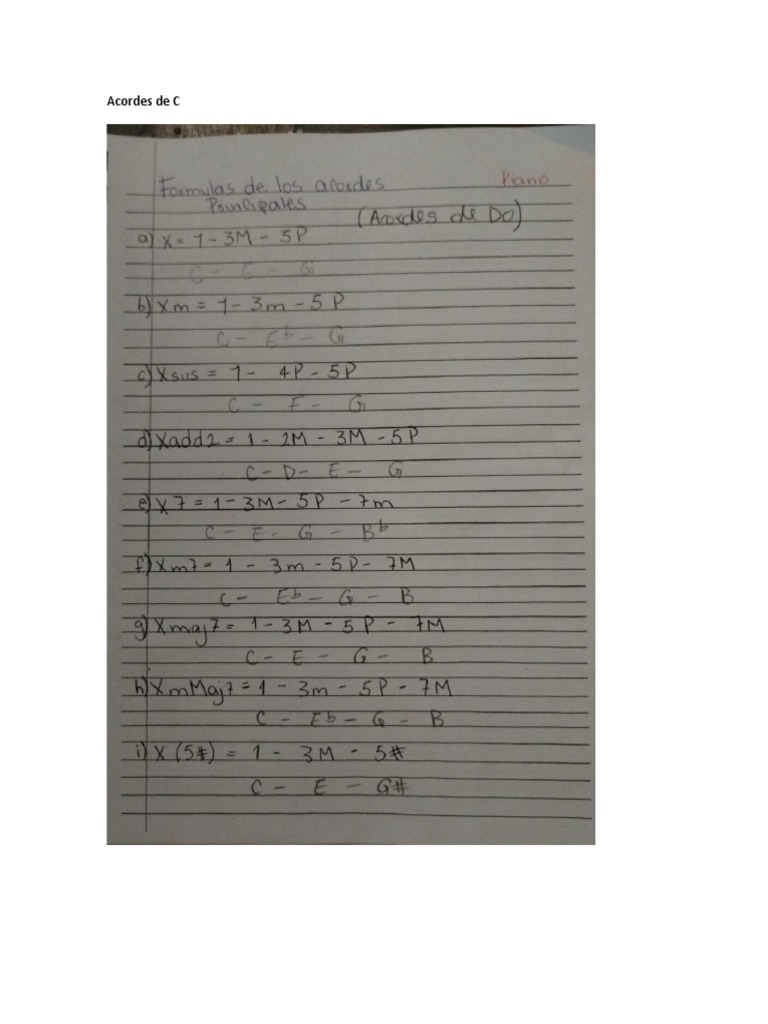 Acordes de C
Formulas de los acordes Piano
Principales
(Acordes de DO)
a) X = 1 - 3M - 5P
C - E - G
b) Xm = 1 - 3m - 5P
C - Eb - G
c) Xsus = 1 - 4P - 5P
C - F - G
d) Xadd2 = 1 - 2M - 3M - 5P
C - D - E - G
e) X7 = 1 - 3M - 5P - 7m
C - E - G - Bb
f) Xm7 = 1 - 3m - 5P - 7M
C - Eb - G - B
g) Xmaj7 = 1 - 3M - 5P - 7M
C - E - G - B
h) XmMaj7 = 1 - 3m - 5P - 7M
C - Eb - G - B
i) X (5#) = 1 - 3M - 5#
C - E - G#